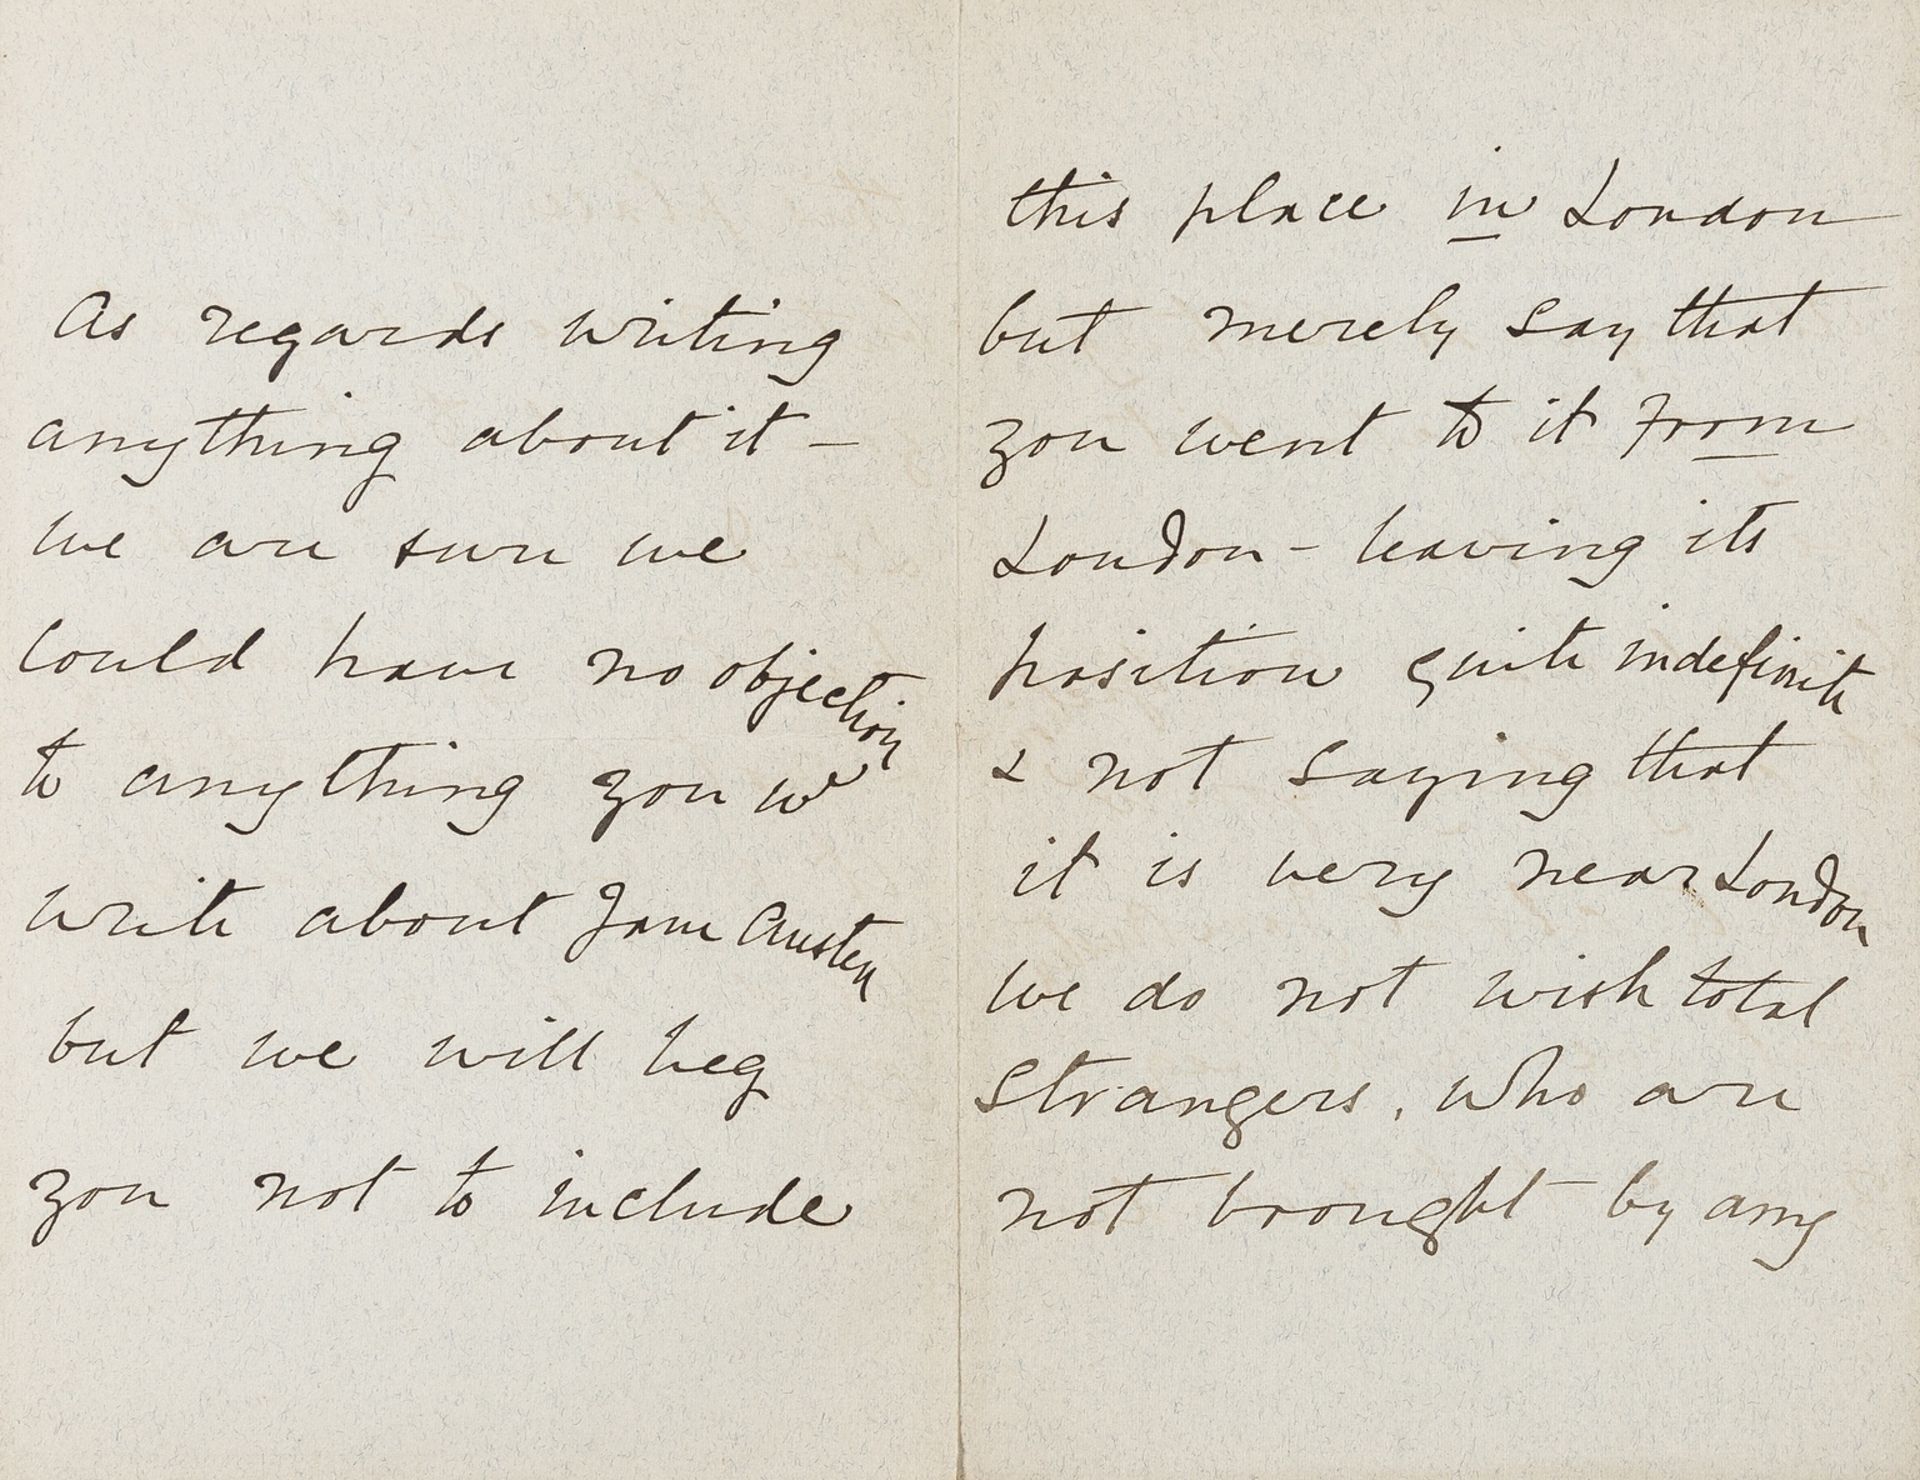 As regards writing
anything about it –
we are sure we
could have no objection
to anything you wd
write about Jane Austen
but we will beg
you not to include
this place in London
but merely say that
you went to it from
London – leaving its
position quite indefinite
& not saying that
it is very near London
we do not wish total
strangers, who are
not brought by any